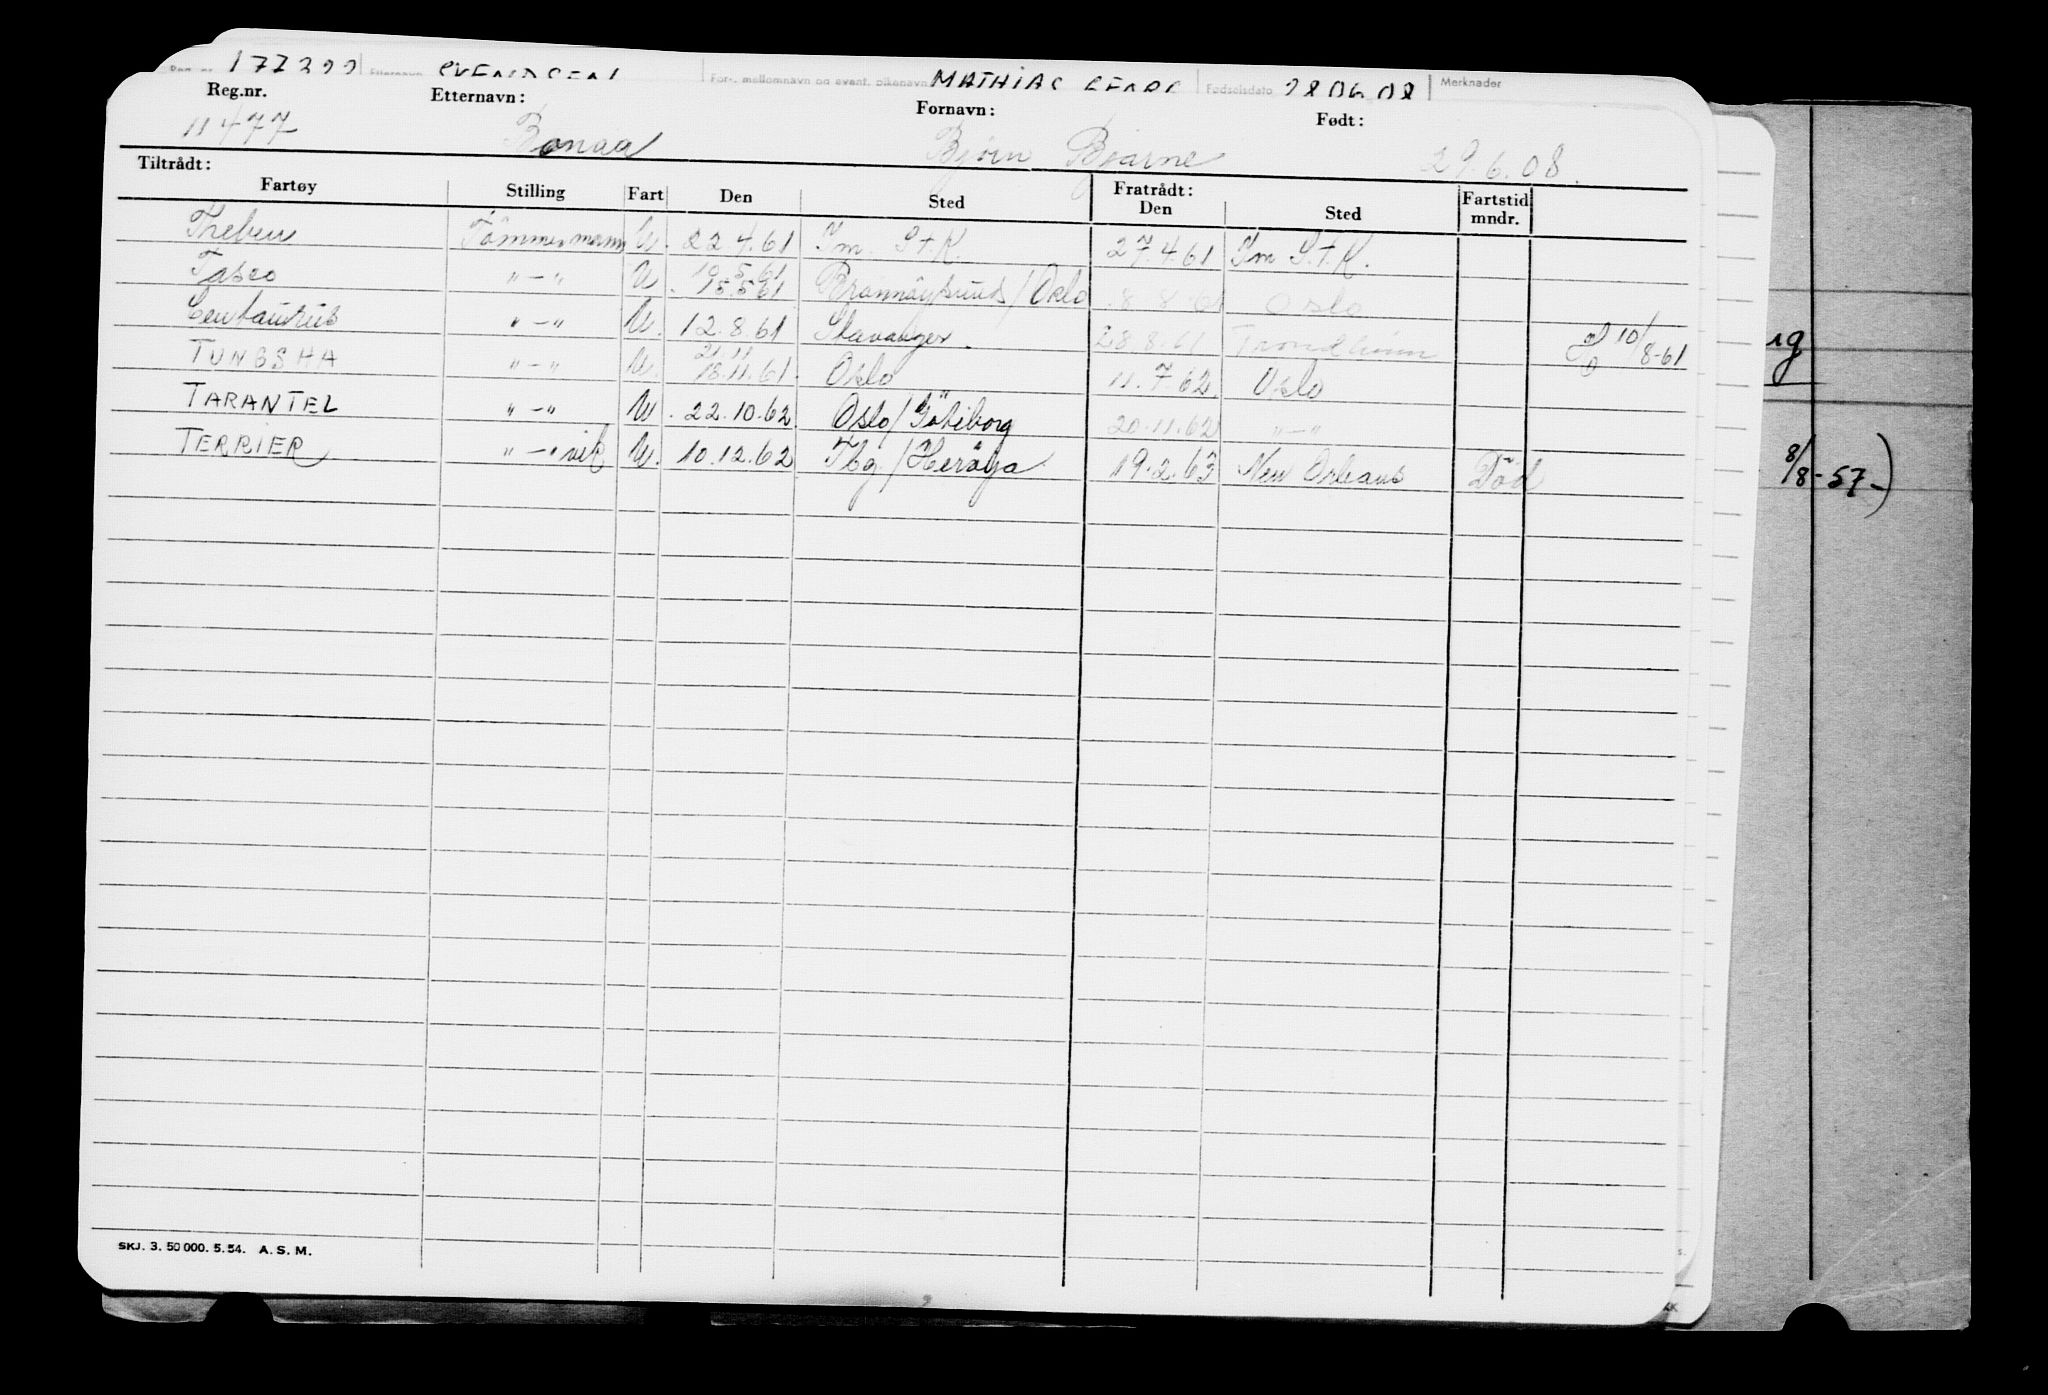 Reg.nr. 177399 Etternavn SVENDSEN For-, mellomnavn og event. pikenavn MATHIAS GEORG Fødselsdato 28 06 08 Merknader
Reg.nr. Etternavn: Fornavn: Født:
11477 Bonaa Bjørn Bjarne 29.6.08.
Tiltrådt: Fratrådt:
Fartøy Stilling Fart Den Sted Den Sted Fartstid mndr.
Theben Tömmermann U. 22.4.61 Im. S+K. 27.4.61 Im S.+K.
Tasco "-" U. 10.5.61 15.5.61 Brønnøysund/Oslo 8.8.61 Oslo
Centaurus "-" U. 12.8.61 Stavanger. 28.8.61 Trondheim 10/8-61
TUNGSHA "-" U. 21.11 18.11.61. Oslo 11.7.62. Oslo
TARANTEL "-" U. 22.10.62 Oslo/Göteborg 20.11.62 "-"
TERRIER "-" vik U. 10.12.62 Tbg./Heröya 19.2.63 New Orleans Död
8/8-57-)
SKJ. 3. 50 000. 5. 54. A. S. M.